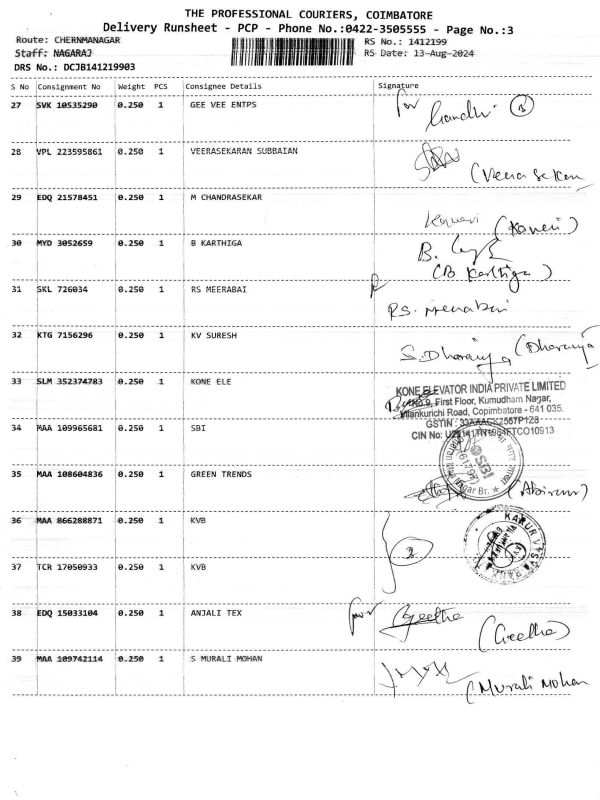 THE PROFESSIONAL COURIERS, COIMBATORE
Delivery Runsheet - PCP - Phone No.:0422-3505555 - Page No.:3
Route: CHERNMANAGAR RS No.: 1412199
Staff: NAGARAJ RS Date: 13-Aug-2024
DRS No.: DCJB141219903
S No Consignment No Weight PCS Consignee Details Signature
27 SVK 10535290 0.250 1 GEE VEE ENTPS for Gandhi B
28 VPL 223595861 0.250 1 VEERASEKARAN SUBBAIAN
(Veerasekan
29 EDQ 21578451 0.250 1 M CHANDRASEKAR
Kaveri (Kaveri)
30 MYD 3052659 0.250 1 B KARTHIGA B.
(B Karthiga)
31 SKL 726034 0.250 1 RS MEERABAI
RS. Meerabai
32 KTG 7156296 0.250 1 KV SURESH
S. Dharanya (Dharanya
33 SLM 352374783 0.250 1 KONE ELE
KONE ELEVATOR INDIA PRIVATE LIMITED
No.9, First Floor, Kumudham Nagar,
Vilankurichi Road, Coimbatore - 641 035.
34 MAA 109965681 0.250 1 SBI
SBI
35 MAA 108604836 0.250 1 GREEN TRENDS
(Abirami)
36 MAA 866288871 0.250 1 KVB
KARUR VYSYA BANK
2
37 TCR 17050933 0.250 1 KVB
38 EDQ 15033104 0.250 1 ANJALI TEX for Geetha
(Geetha)
39 MAA 109742114 0.250 1 S MURALI MOHAN
(Murali Mohan